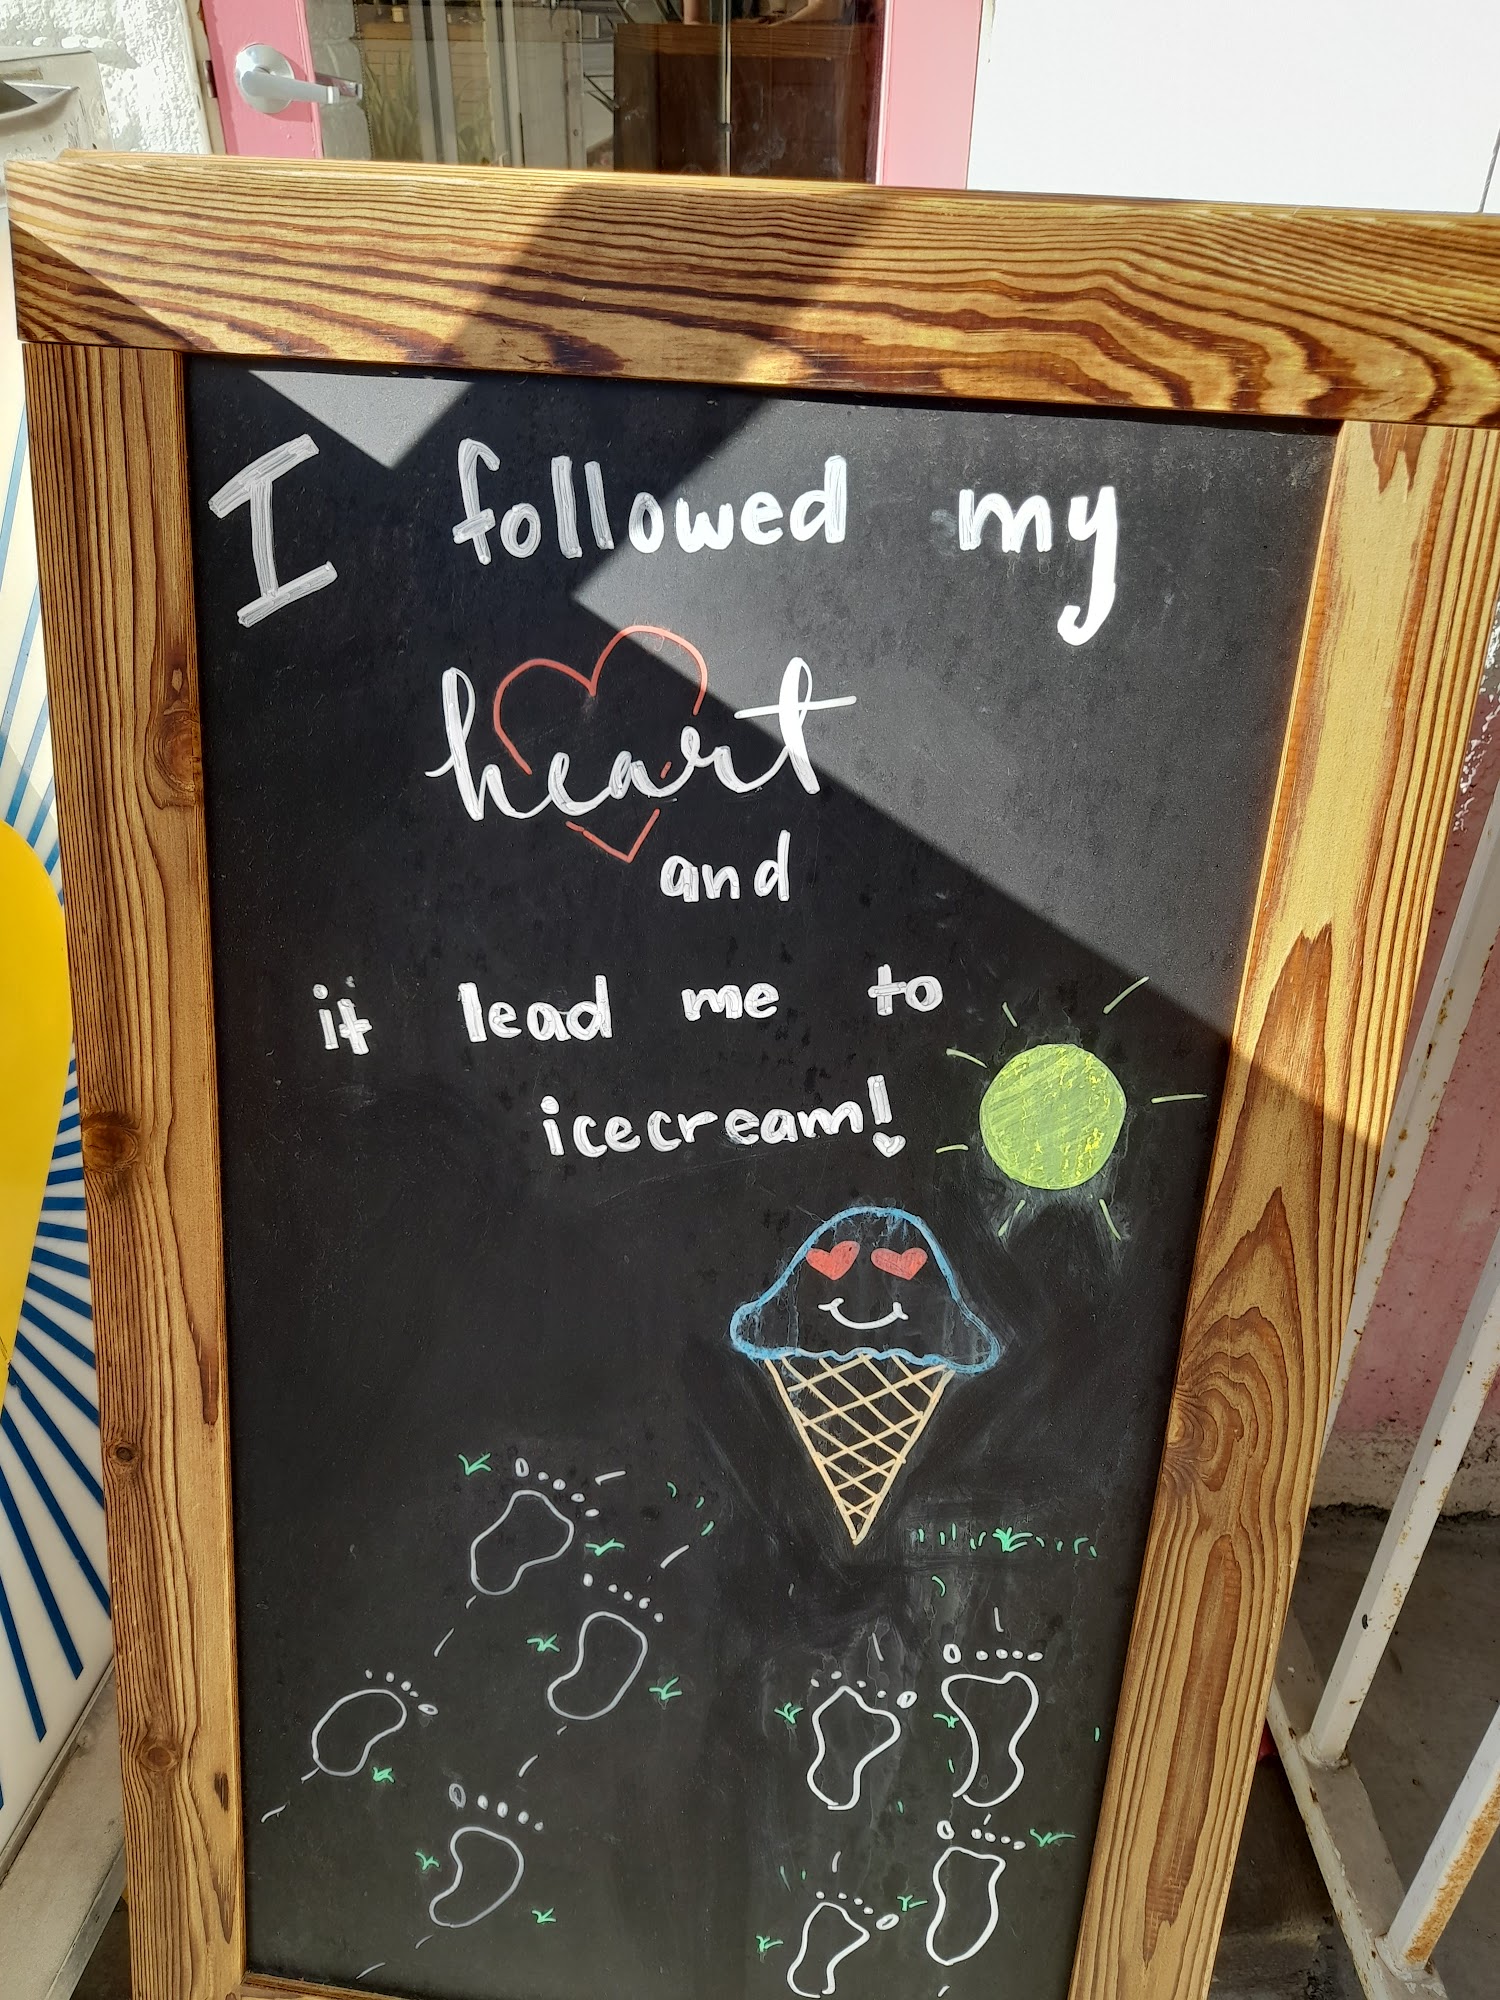 I followed my
heart
and
it lead me to
icecream!